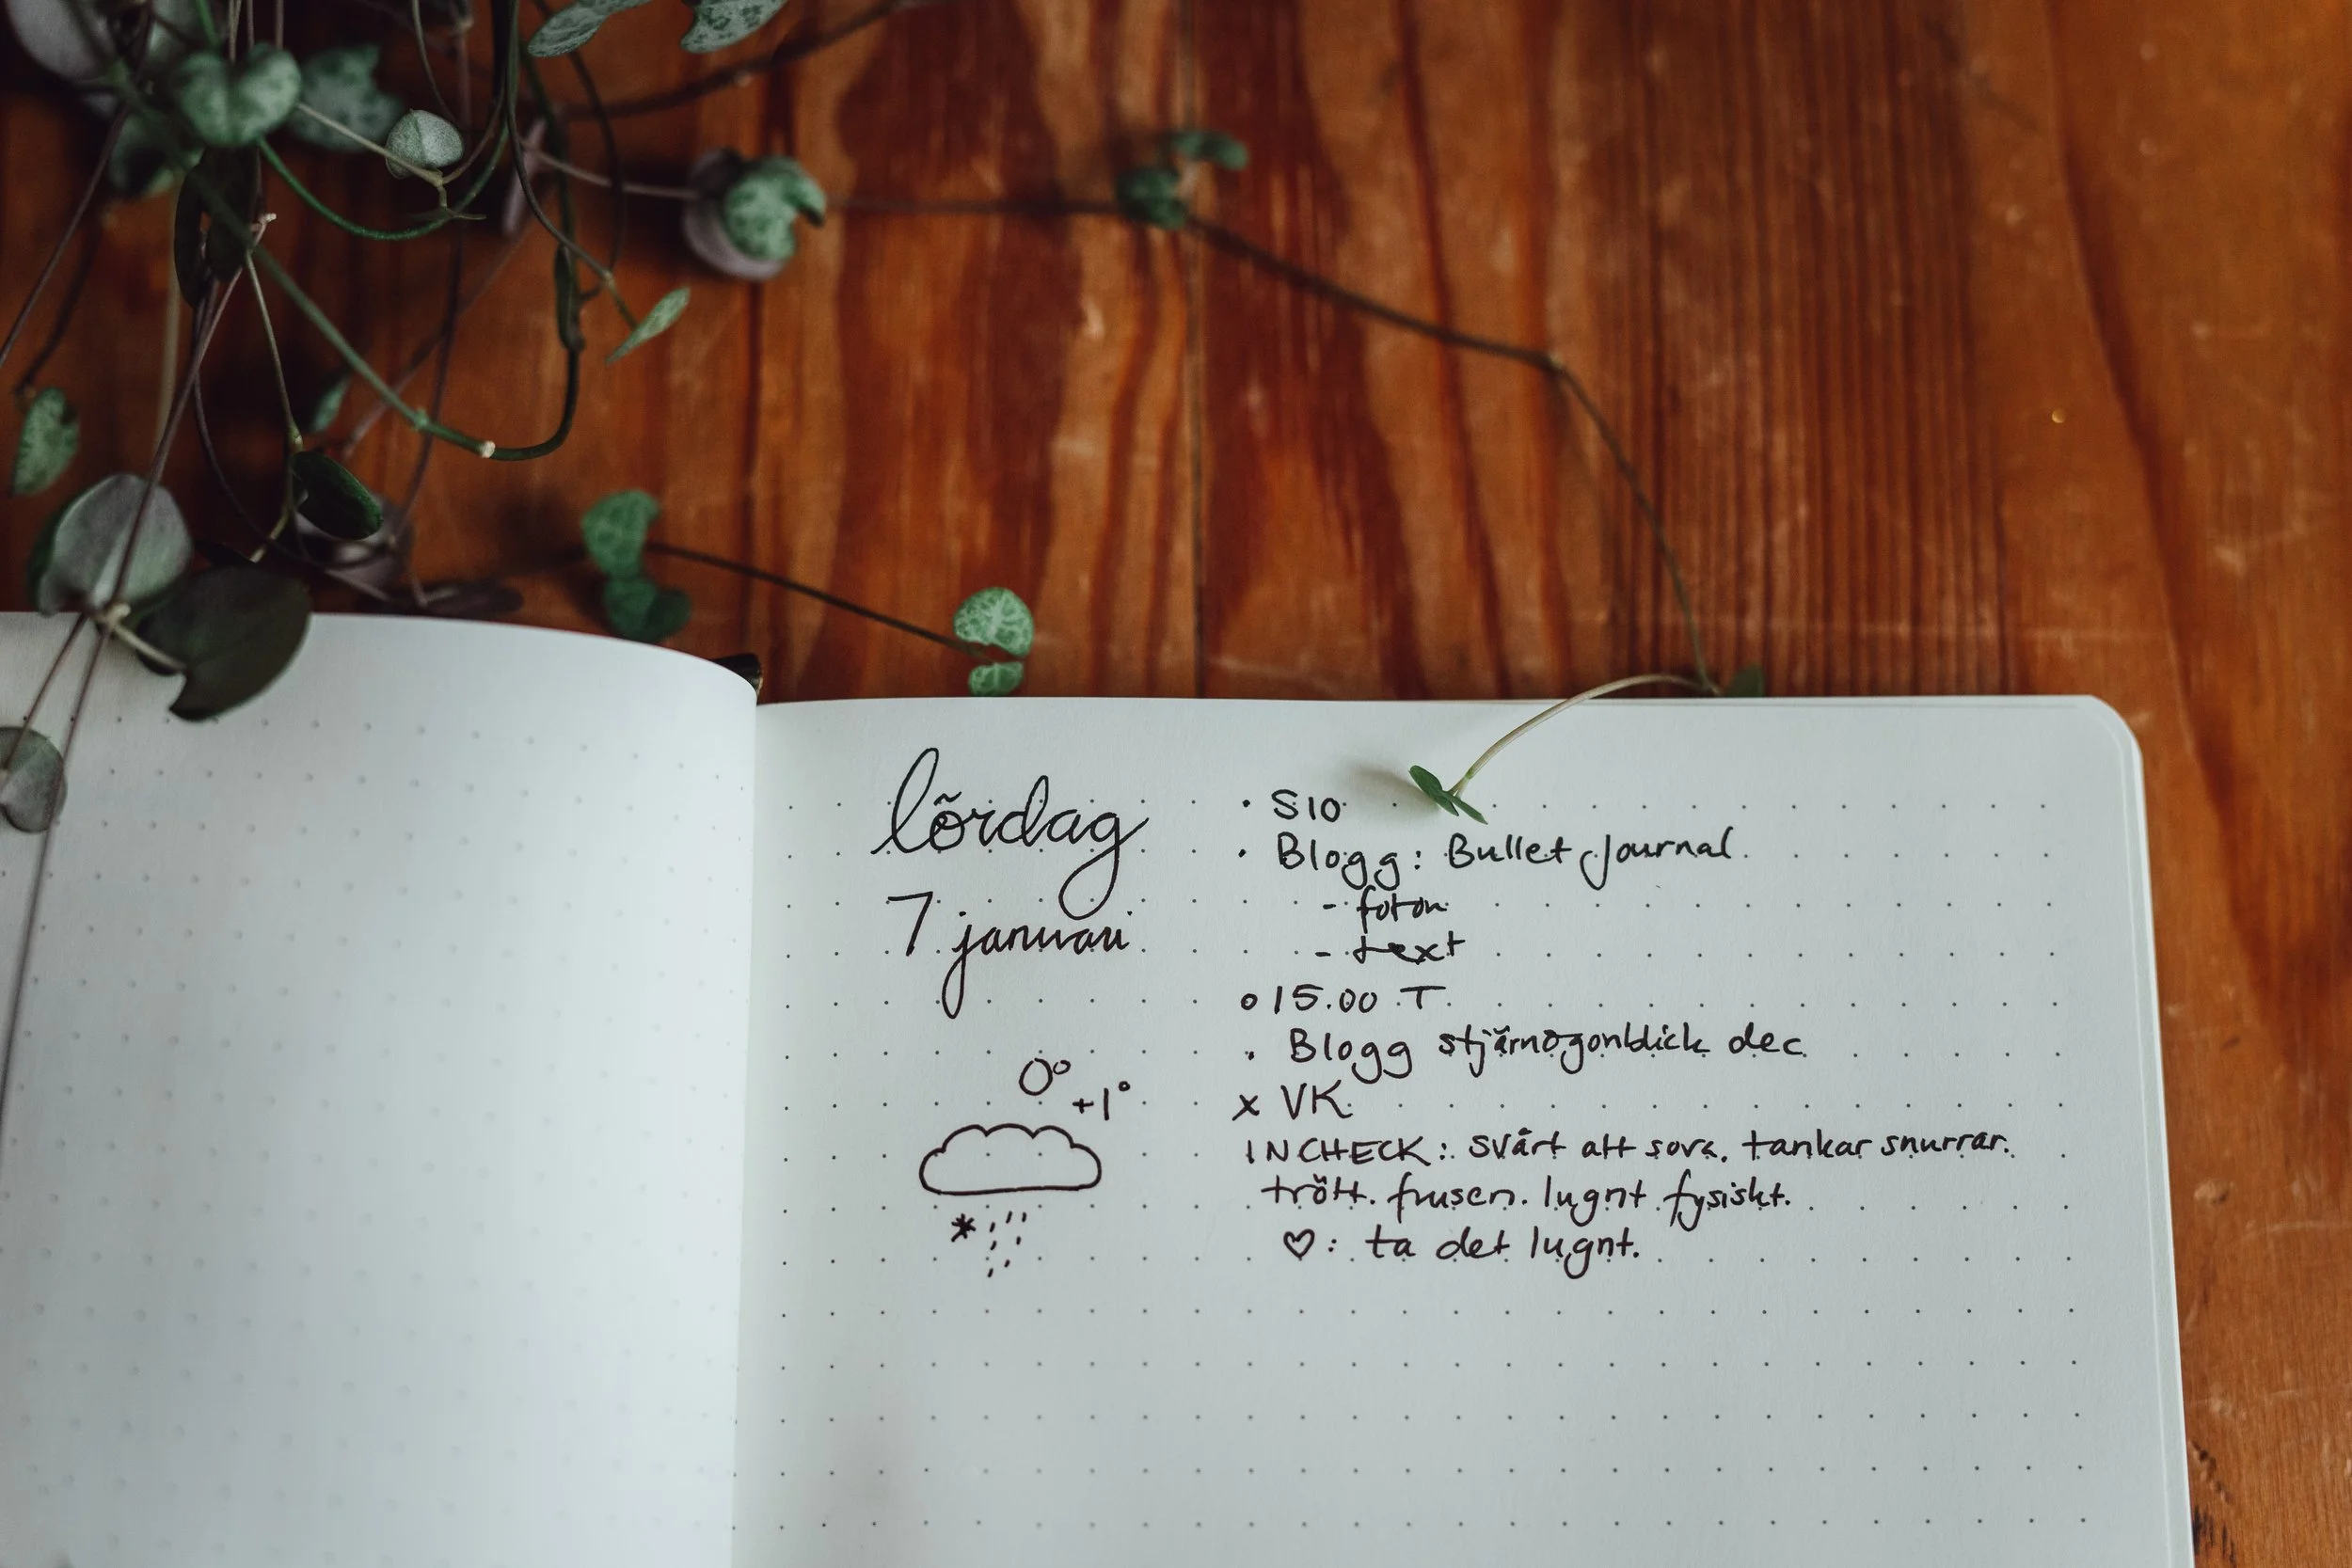 lördag
7 januari
0°
+1°
• S10
• Blogg: Bullet Journal
- foton
- text
o 15.00 T
• Blogg stjärnögonblick dec
x VK
INCHECK: svårt att sova. tankar snurrar.
trött. frusen. lugnt fysiskt.
♡: ta det lugnt.